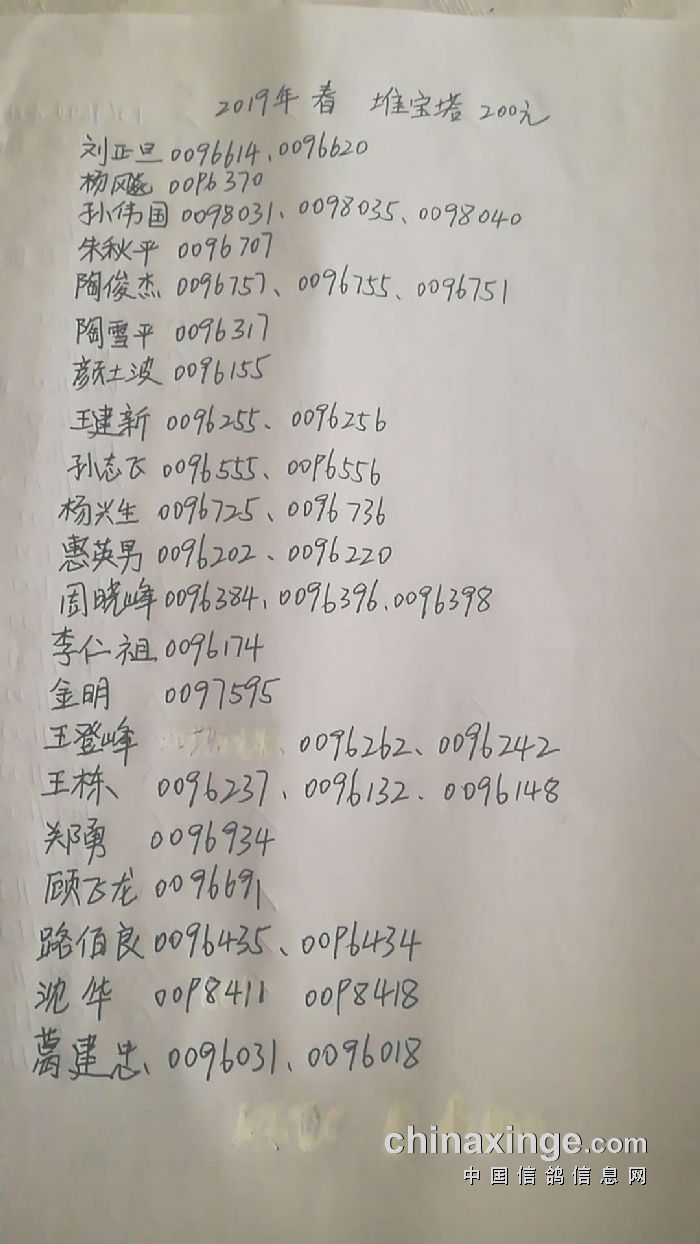 2019年 春 堆宝塔 200元
刘正旦 0096614、0096620
杨飚 0096370
孙伟国 0098031、0098035、0098040
朱秋平 0096707
陶俊杰 0096757、0096755、0096751
陶雪平 0096317
颜士波 0096155
王建新 0096255、0096256
孙志飞 0096555、0096556
杨兴生 0096725、0096736
惠英男 0096202、0096220
周晓峰 0096384、0096396、0096398
李仁祖 0096174
金明 0097595
王登峰 、0096262、0096242
王栋、 0096237、0096132、0096148
郑勇 0096934
顾飞龙 0096691
路佰良 0096435、0096434
沈华 0098411 0098418
葛建忠、0096031、0096018
chinaxinge.com
中国信鸽信息网